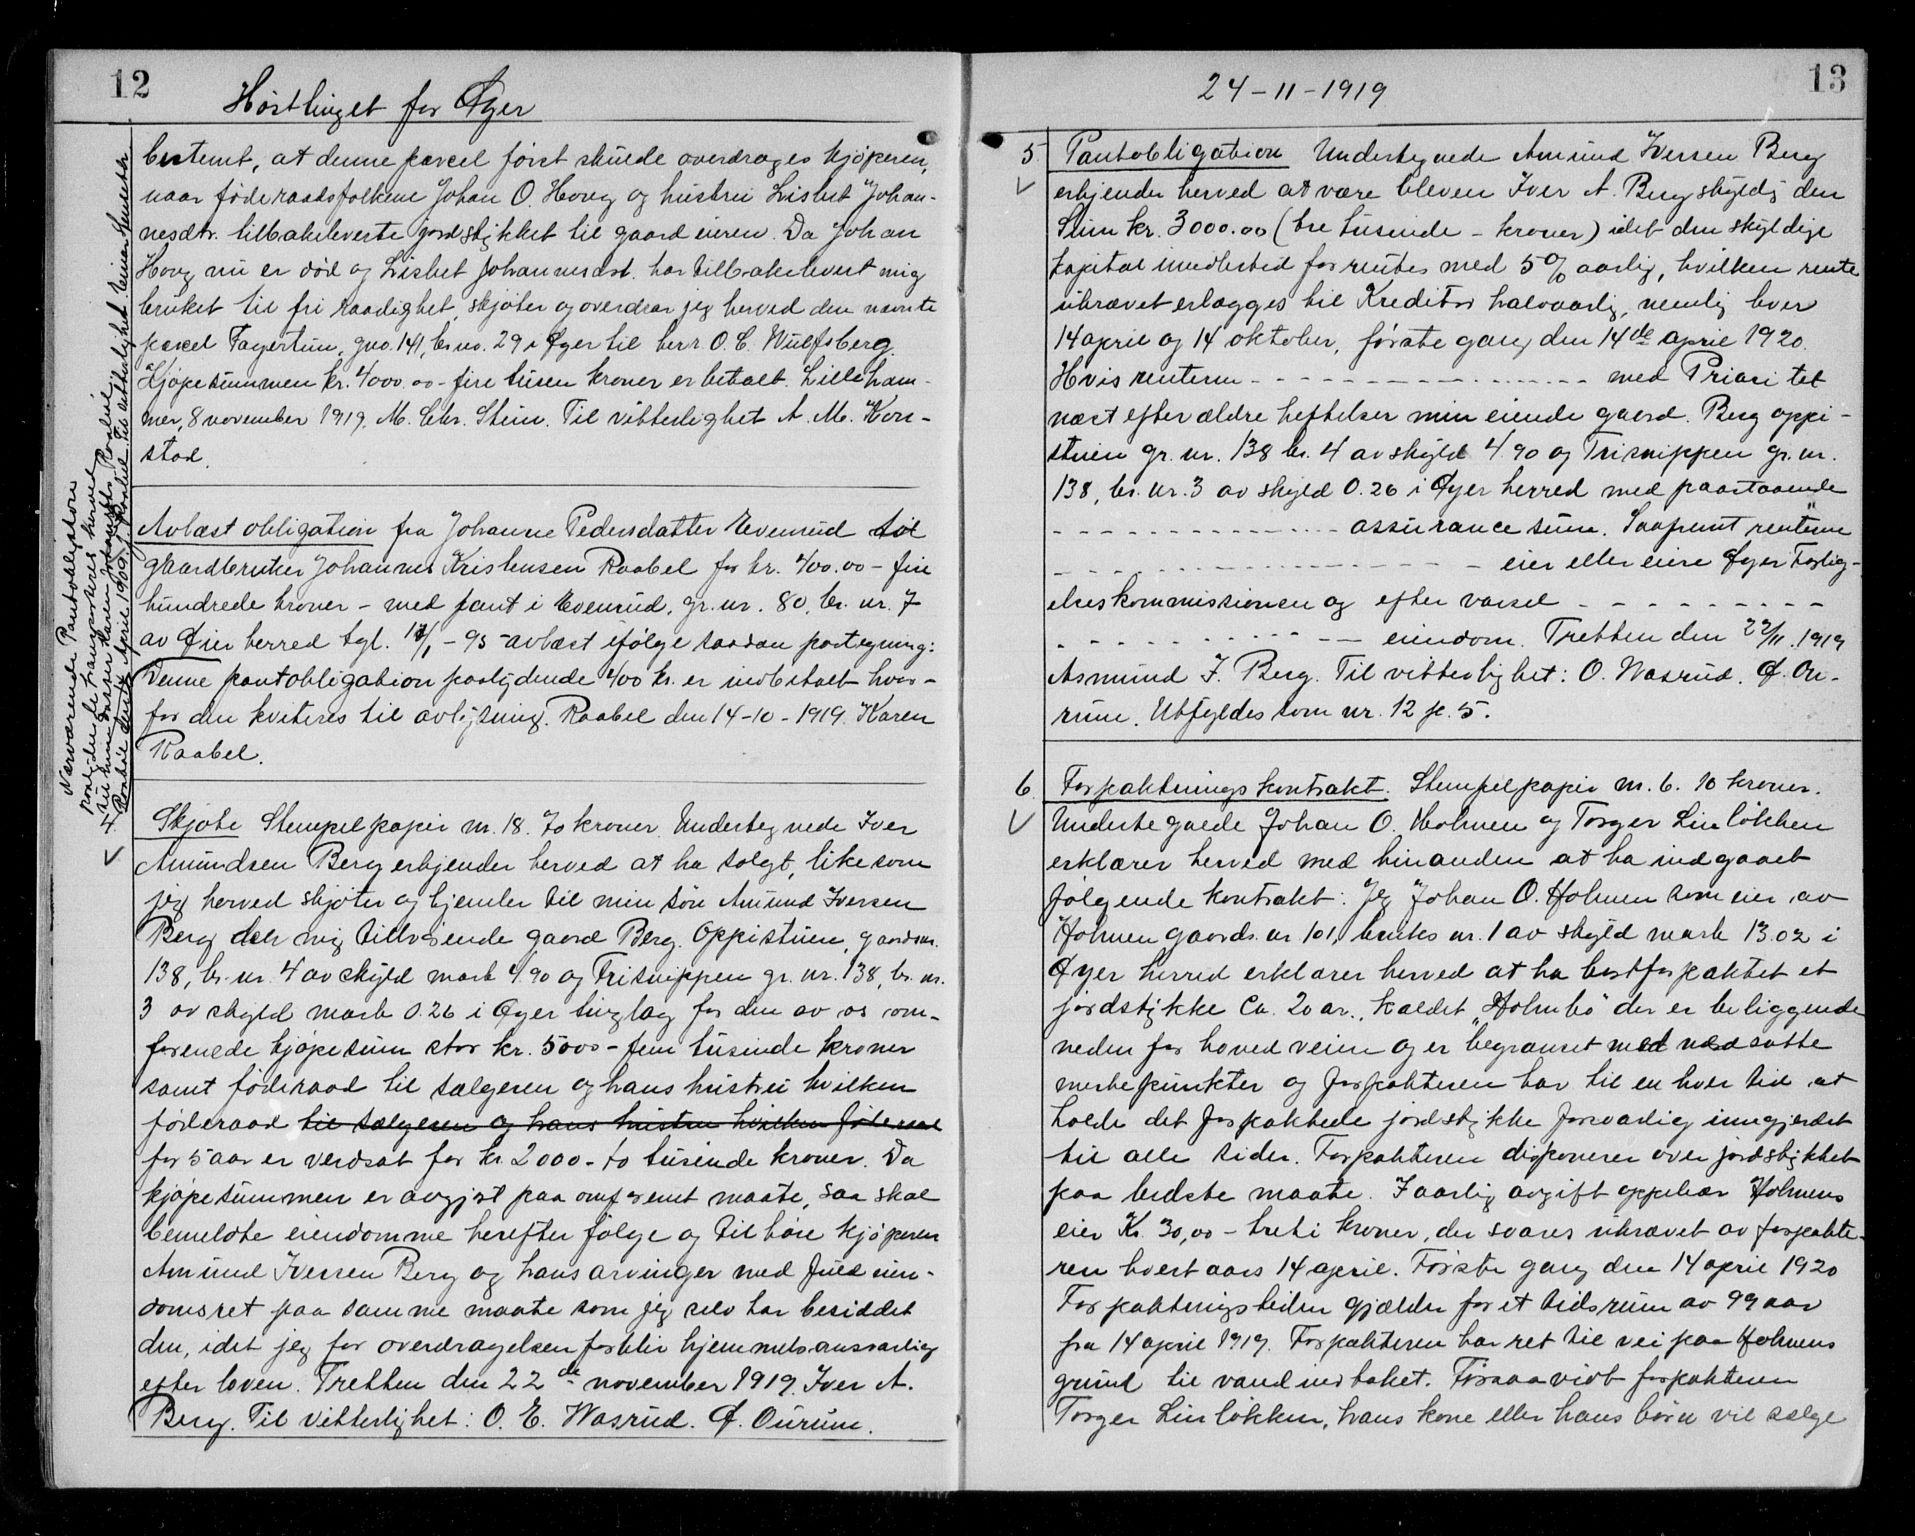 12
Høsttinget for Øyer
bestemt, at denne parcel først skulde overdrages kjøperen,
naar føderaadsfolkene Johan O. Hovg og hustru Lisbet Johan-
nesdtr. tilbakeleverte jordstykket til gaardeieren. Da Johan
Hovg nu er död og Lisbet Johannesdat. har tilbakelevert mig
bruket til fri raadighet, skjøter og overdrar jeg herved den nævnte
parcel Fagertun, gno. 141, br.no. 29 i Øyer til herr O. C. Wulfsberg.
Kjøpesummen kr. 4000.00 - fire tusen kroner er betalt. Lilleham-
mer, 8 november 1919. M. Chr. Stein. Til vitterlighet A. M. Kon-
stad.
Avlæst obligation fra Johanne Pedersdatter Evenrud til
gaardbruker Johannes Kristensen Raabøl for kr. 400.00 - fire
hundrede kroner - med pant i Evenrud, gr. nr. 80, br. nr. 7
av Øier herred tgl. 17/1 - 95 avlæst ifølge saadan paategning:
Denne pantobligation paalydende 400 kr. er indbetalt hvor-
for den kviteres til avlysning. Raabøl den 14-10-1919. Karen
Raabøl.
Nærværende Pantobligation
paalydende transporteres herved
til
Raabøl den 14 April 1909. Til vitterlighet
4.
Skjøte Stempelpapir nr. 18. 70 kroner. Undertegnede Iver
Amundsen Berg erkjender herved at ha solgt, likesom
jeg herved skjøter og hjemler til min søn Amund Iversen
Berg den mig tilhørende gaard Berg Oppistuen, gaardsnr.
138, br. nr. 4 av skyld mark 4.90 og Trisnippen gr. nr. 138, br. nr.
3 av skyld mark 0.26 i Øyer tinglag for den av os om-
forenede kjøpesum stor kr. 5000 - fem tusinde kroner
samt föderaad til sælgeren og hans hustru hvilken
föderaad til sælgeren og hans hustru hvilken föderaad
for 5 aar er verdsat for kr 2000 - to tusinde kroner. Da
kjøpesummen er avgjort paa omforenet maate, saa skal
bemeldte eiendomme herefter følge og tilhøre kjøperen
Amund Iversen Berg og hans arvinger med fuld eien-
domsret paa samme maate som jeg selv har besiddet
den, idet jeg for overdragelsen forblir hjemmelsansvarlig
efter loven. Tretten den 22de november 1919. Iver A.
Berg. Til vitterlighet: O. E. Wasrud. O. Ourum.
24-11-1919
13
5 Pantobligation Undertegnede Amund Iversen Berg
erkjender herved at være bleven Iver A. Berg skyldig den
Sum kr. 3000.00 (tre tusinde - kroner) idet den skyldige
kapital imidlertid forrentes med 5% aarlig, hvilken rente
ukrævet erlægges til Kreditor halvaarlig, nemlig hver
14 april og 14 oktober, første gang den 14de april 1920.
Hvis renterne - - - - - - - - - - - med Prioritet
næst efter ældre heftelser min eiende gaard Berg oppi-
stuen gr. nr. 138 br. 4 av skyld 4.90 og Trisnippen gr. nr.
138, br. nr. 3 av skyld 0.26 i Øyer herred med paastaaende
- - - - - - - - - - assurancesum. Saafremt renterne
- - - - - - - - - - - - eier eller eiere Øyer Forlig-
elseskommissionen og efter varsel - - - - - - - -
- - - - - - - - - - eiendom. Tretten den 22/11.1919
Asmund I. Berg. Til vitterlighet: O. Wasrud. O. Ou-
rum. Utfyldes som nr. 12 p. 5.
6. Forpaktningskontrakt. Stempelpapir nr. 6. 10 kroner.
Undertegnede Johan O. Holmen og Torger Linløkken
erklærer herved med hinanden at ha indgaaet
følgende kontrakt: Jeg Johan O. Holmen som eier av
Holmen gaards. nr 101, bruks nr. 1 av skyld mark 13.02 i
Øyer herred erklærer herved at ha bortforpaktet et
jordstykke ca. 20 ar., kaldet "Holmbo" der er beliggende
nedenfor hovedveien og er begrænset med nedsatte
merkepunkter og forpakteren har til enhver tid at
holde det forpaktede jordstykke forsvarlig inngjerdet
til alle sider. Forpakteren disponerer over jordstykket
paa bedste maate. I aarlig avgift oppebær Holmens
eier Kr. 30,00 - treti kroner, der svares ukrævet av forpakte-
ren hvert aars 14 april. Første gang den 14 april 1920
Forpaktningstiden gjælder for et tidsrum av 99 aar
fra 14 april 1919. Forpakteren har ret til vei paa Holmens
grund til vandindtaket. Forsaavidt forpakteren
Torger Linløkken, hans kone eller hans børn vil sælge